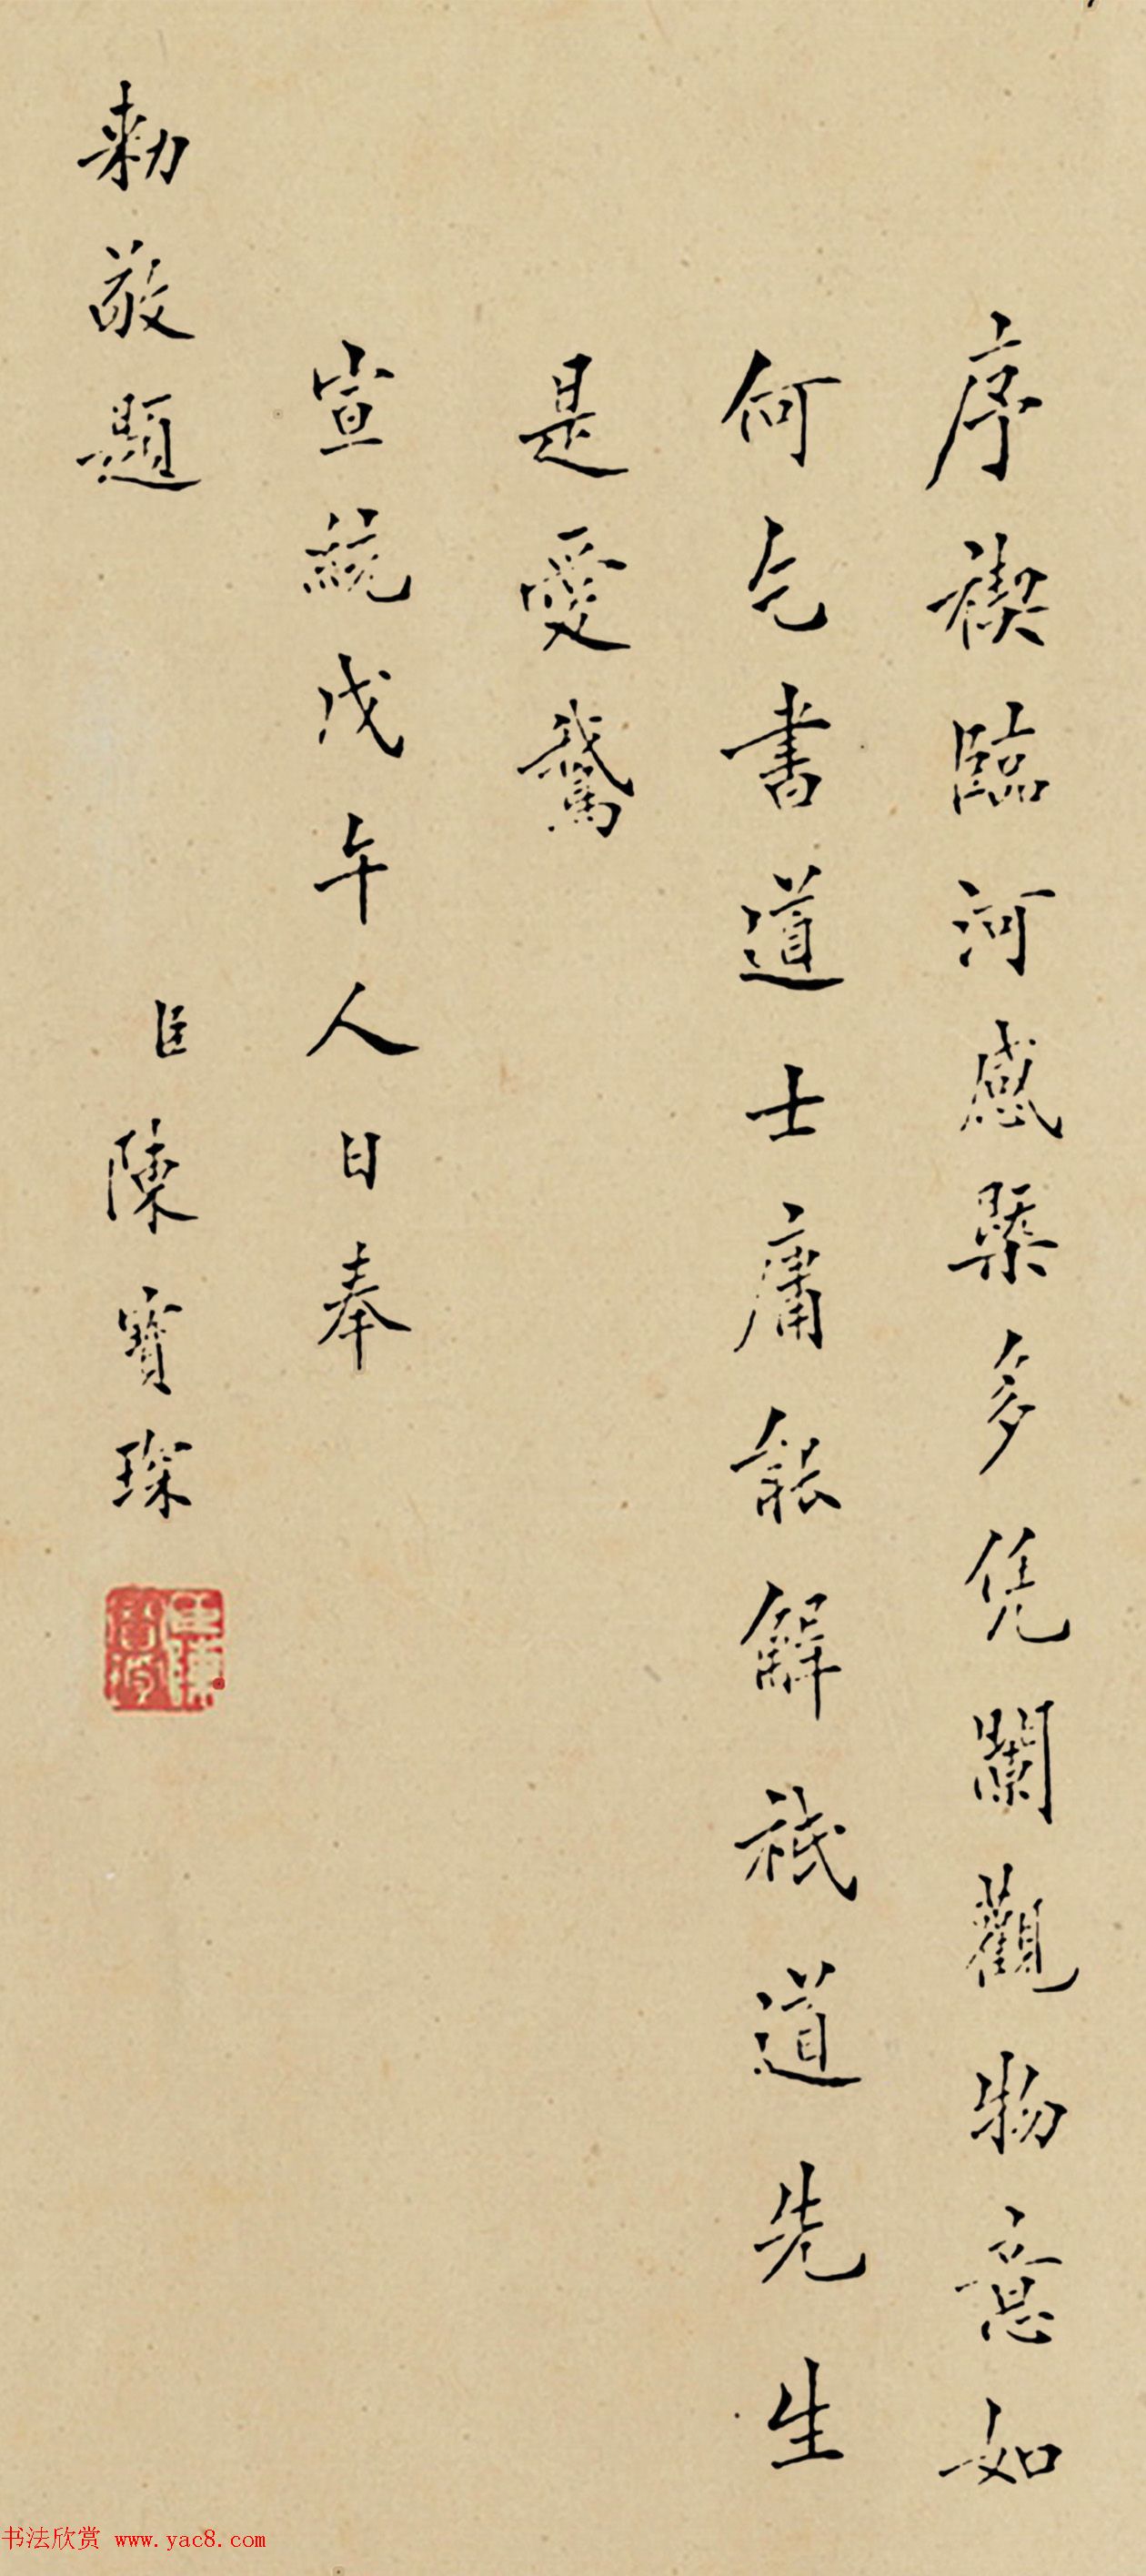 序禊臨河感槩多凭闌觀物意如
何乞書道士庸能解祇道先生
是愛鵞
宣統戊午人日奉
勅敬題
臣陳寶琛
书法欣赏 www.yac8.com